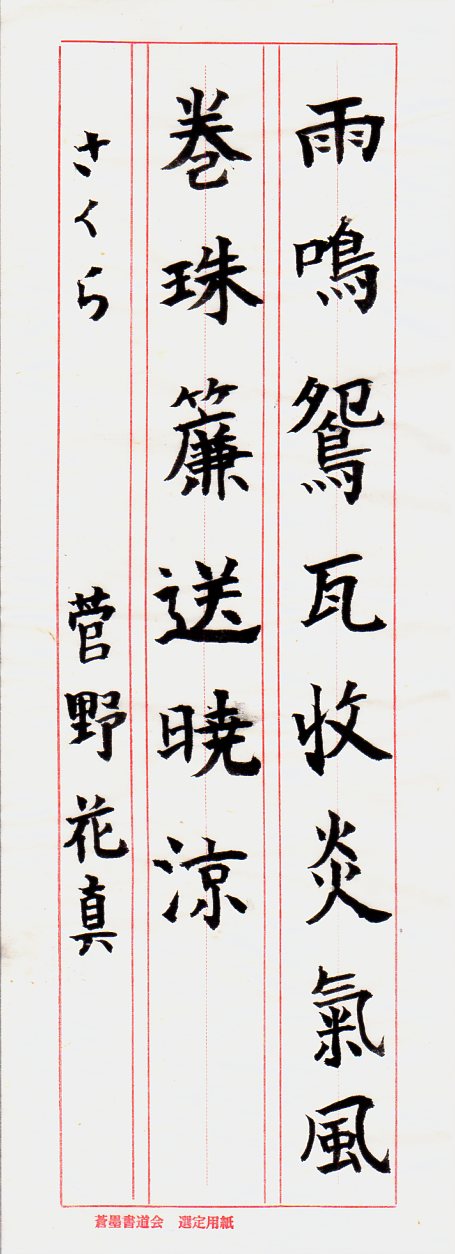 雨鳴鴛瓦收炎氣風
巻珠簾送暁涼
さくら 菅野花真
蒼墨書道会 選定用紙